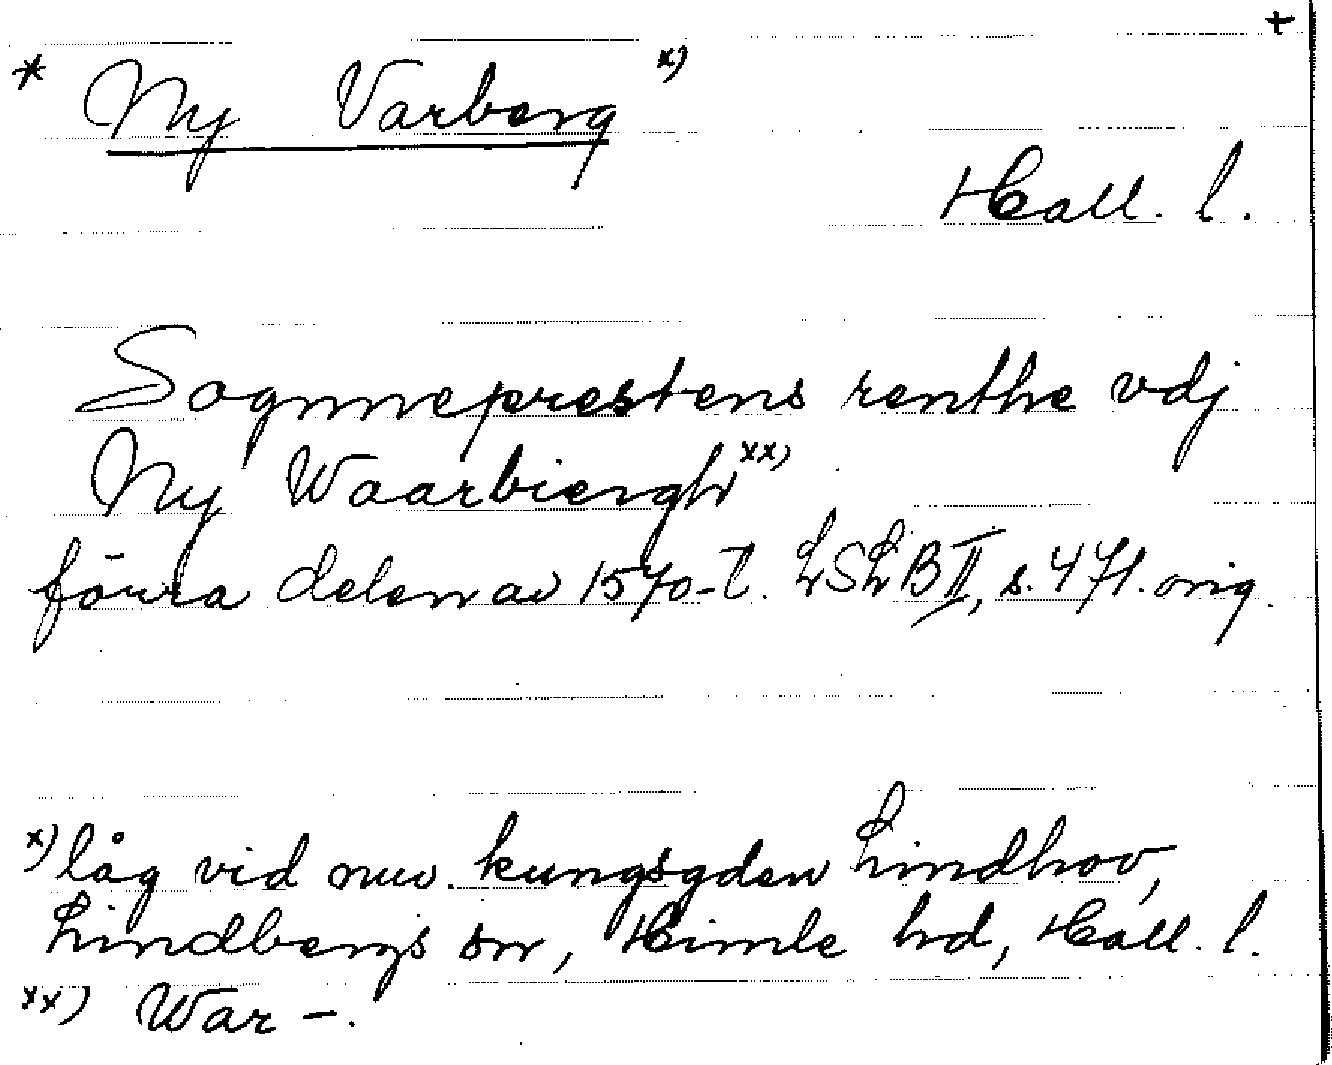 +
* Ny Varberg x)
Hall. l.
Sognneprestens renthe vdj
Ny Waarbiergh xx)
förra delen av 1570-t. LSLB II, s. 471. orig.
x) låg vid nuv. kungsgden Lindhov,
Lindbergs sn, Himle hd, Hall. l.
xx) War –.